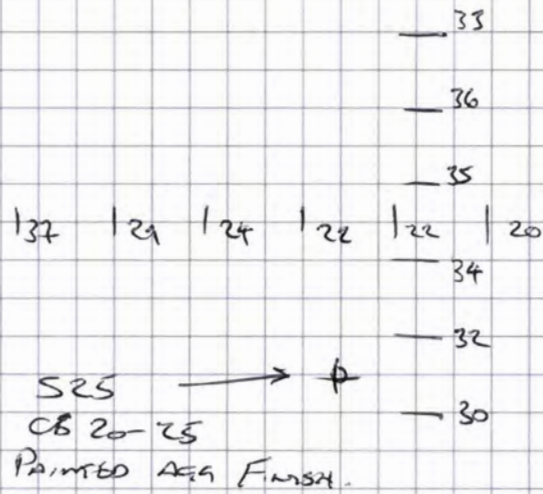 33
36
35
37 29 24 22 22 20
34
32
S25
30
CB 20-25
PAINTED AGG FINISH.